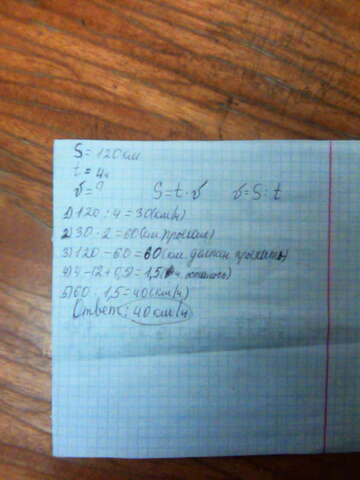 S = 120 км
t = 4ч
v = ?
S = t · v v = S : t
1) 120 : 4 = 30 (км/ч)
2) 30 · 2 = 60 (км проехал)
3) 120 - 60 = 60 (км должен проехать)
4) 4 - (2 + 0,5) = 1,5 (ч осталось)
5) 60 : 1,5 = 40 (км/ч)
Ответ: 40 км/ч